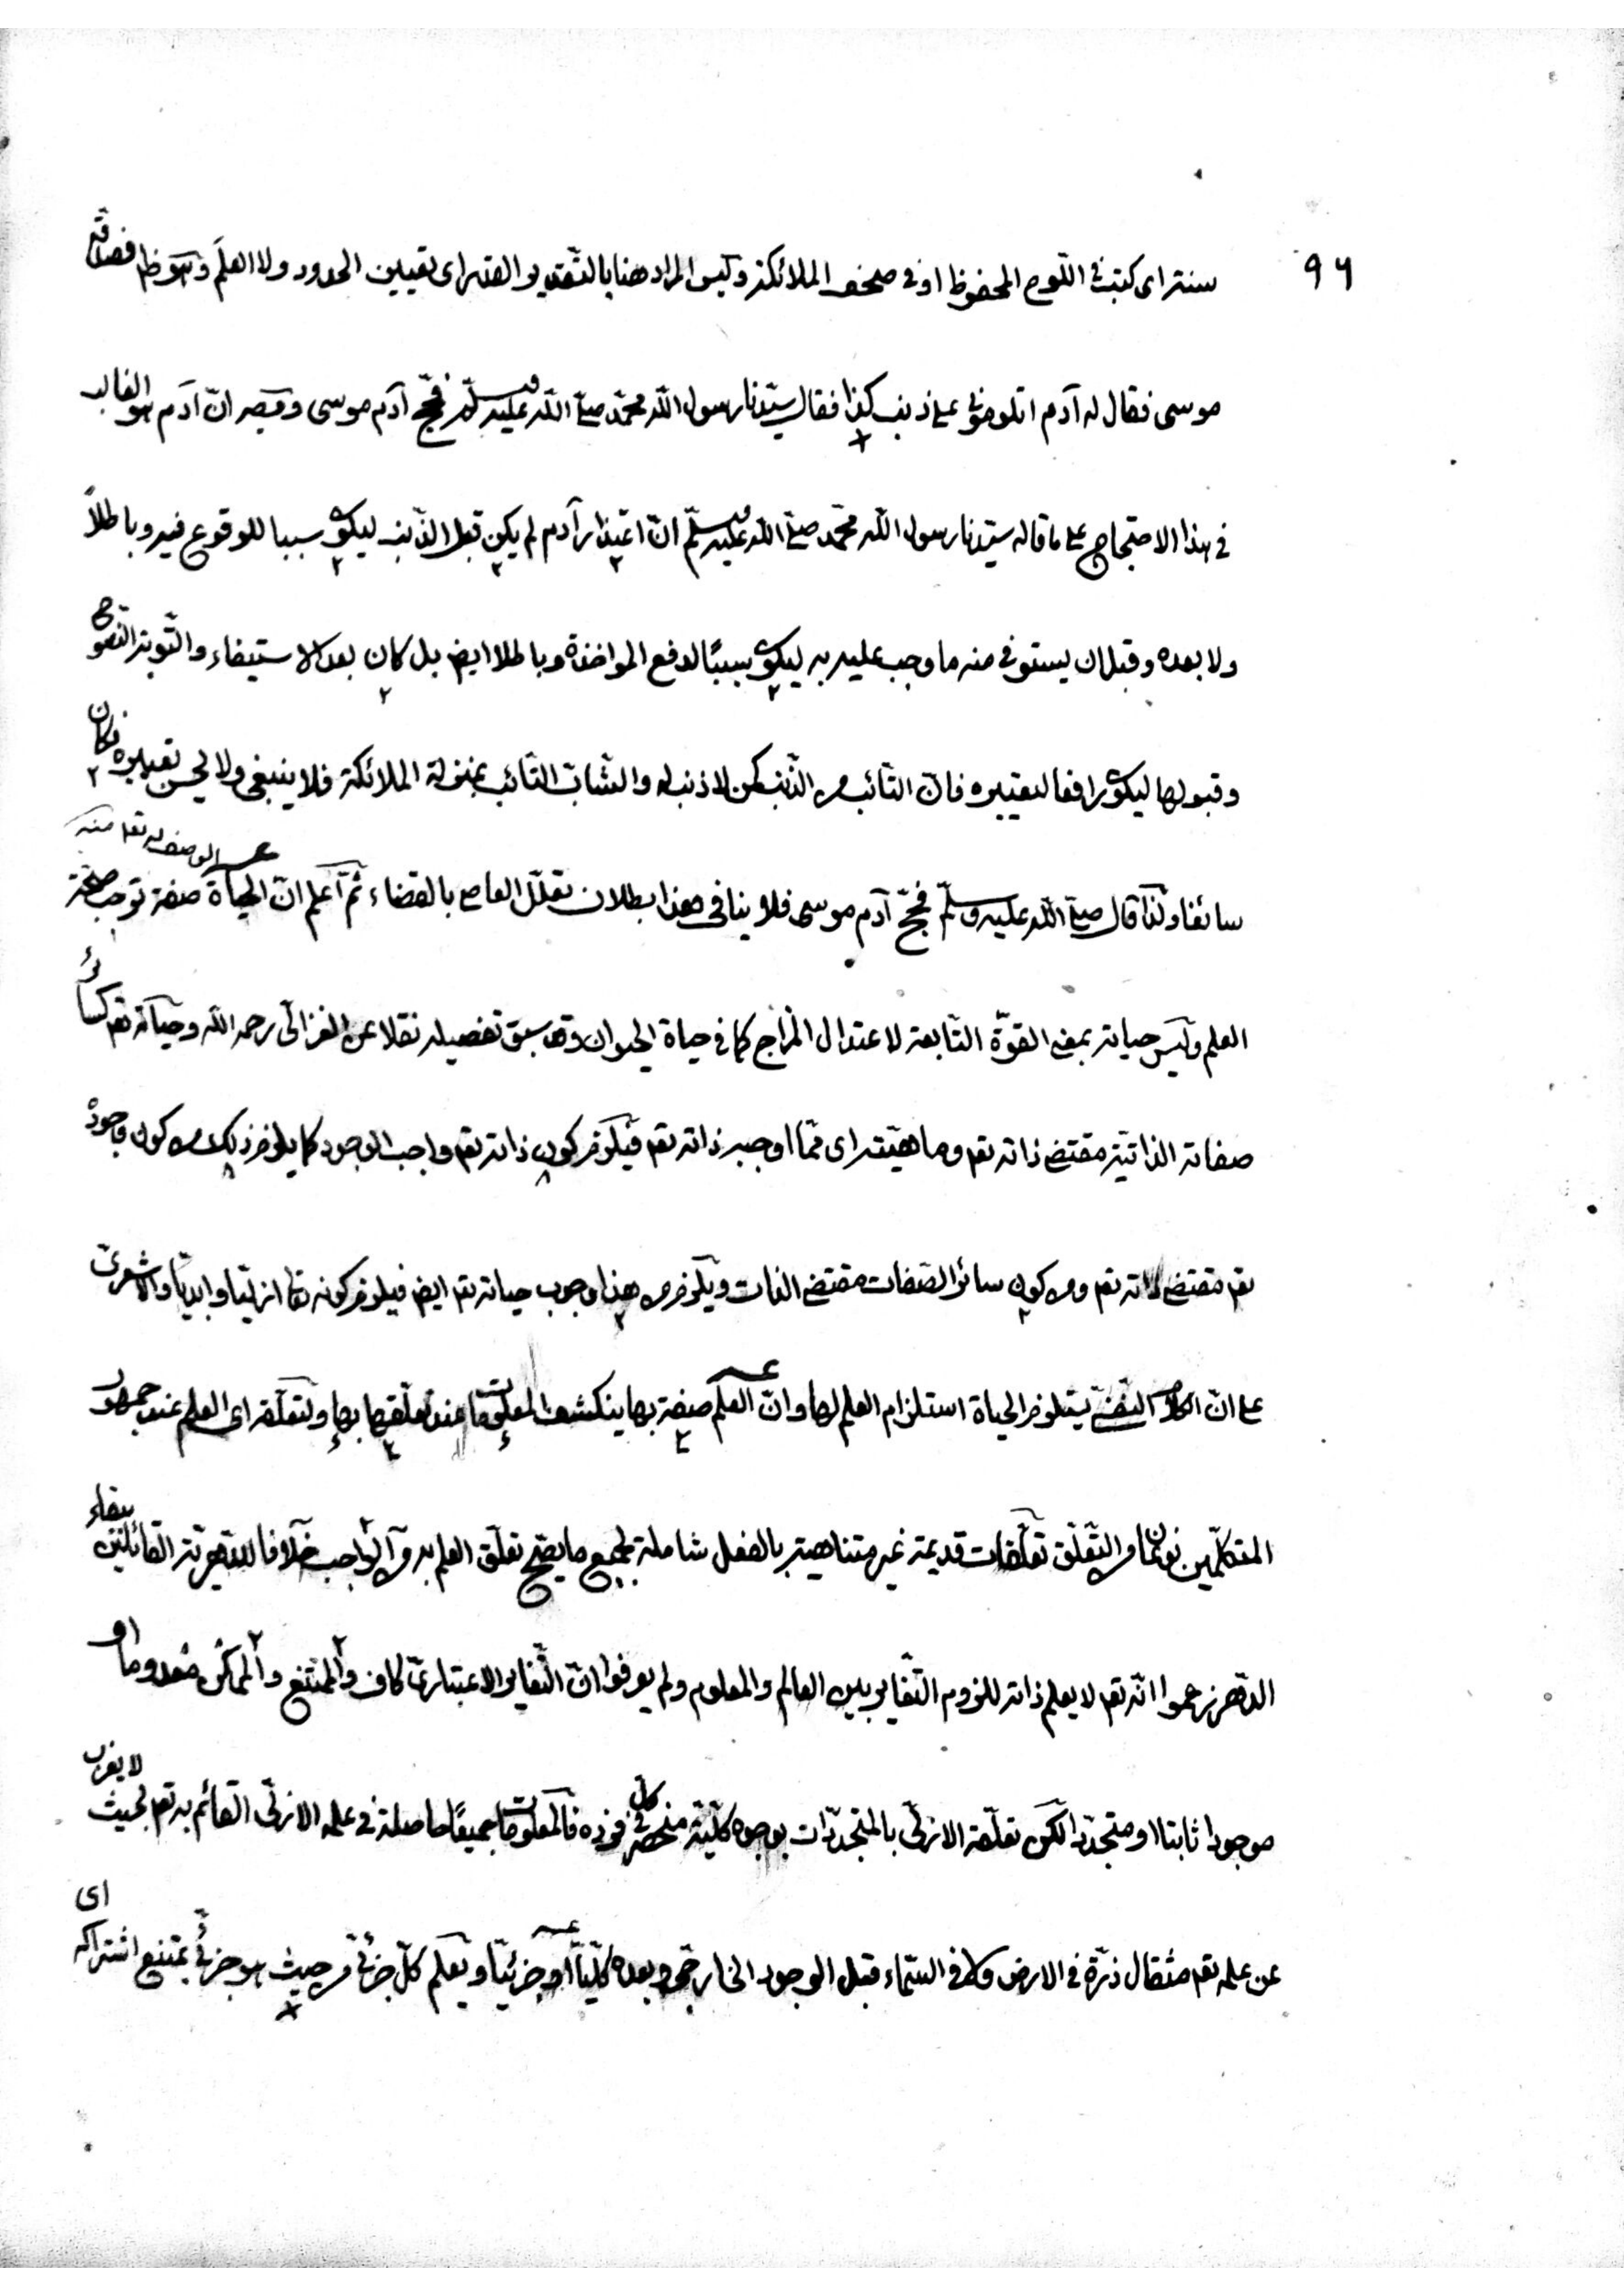 ٩٦
سنة اى كتبت فى اللّوح المحفوظ او فى صحف الملائكة وليس المراد هنا بالتّقدير القدر اى تعيين الحدود ولا العلم وهو ظ فصدّقه
موسى فقال له آدم اتلومنى على ذنب كذا فقال سيّدنا رسول اللّه محمّد صلّى اللّه عليه وسلّم فحجّ آدم موسى وفسّر انّ آدم هو الغالب
فى هذا الاحتجاج على ما قاله سيّدنا رسول اللّه محمّد صلّى اللّه عليه وسلّم انّ اعتذار آدم لم يكن قبل الذّنب ليكون سببا للوقوع فيه وباطلاً
ولا بعده وقبل ان يستوفى منه ما وجب عليه به ليكون سببًا لدفع المواخذة وباطلا ايض بل كان بعد الاستيفاء والتّوبة النّصوح
وقبولها ليكون رافعا لتعييره فانّ التّائب من الذّنب كمن لا ذنب له والشّابّ التّائب بمنزلة الملائكة فلا ينبغى ولا يحسن تعييره فكان
سائغا ولذا قال صلّى اللّه عليه وسلّم فحجّ آدم موسى فلا ينافى هذا بطلان تعلّل العاصى بالقضاء ثمّ اعلم انّ الحياة صفة توجب صحّة
العلم وليس حياته بمعنى القوّة التّابعة لاعتدال المزاج كما فى حياة الحيوان وقد سبق تفصيله نقلا عن الغزالى رحمه اللّه وحياته تع كسائر
صفاته الذاتيّة مقتضى ذاته تع وماهيّته اى ممّا اوجبه ذاته تع فيلزم كون ذاته تع واجب الوجود كما يلزم ذلك من كون وجوده
تع مقتضى ذاته تع ومن كون سائر الصّفات مقتضى الذات ويلزم من هذا وجوب حياته تع ايض فيلزم كونه تعا ازليّا وابديّا والاشعرىّ
على انّ الكلام النّفسى يستلزم الحياة استلزام العلم لها وانّ العلم صفة بها ينكشف المعلومات عند تعلّقها بها ولتعلّقه اى العلم عند جمهور
المتكلّمين نوعان من التّعلّق تعلّقات قديمة غير متناهية بالفعل شاملة لجميع ما يصحّ تعلّق العلم به من الواجب خلافا للدّهريّة القائلين ببقاء
الدّهر زعموا انّه تع لا يعلم ذاته للزوم التّغاير بين العالم والمعلوم ولم يعرفوا انّ التّغاير الاعتبارىّ كاف والممتنع والممكن معدوما او
موجودا ثابتا او متجدّدا لكن تعلّقه الازلىّ بالمتجدّدات بوجوه كلّيّة منحصر كلّ فى فرده فالمعلومات جميعًا حاصلة فى علمه الازلىّ القائم به تع بحيث لا يعزب
عن علمه تع مثقال ذرّة فى الارض ولا فى السّماء قبل الوجود الخارجى وبعده كلّيّا او جزئيّا ويعلم كلّ جزئىّ من حيث هو جزئىّ يمتنع اشتراكه اى